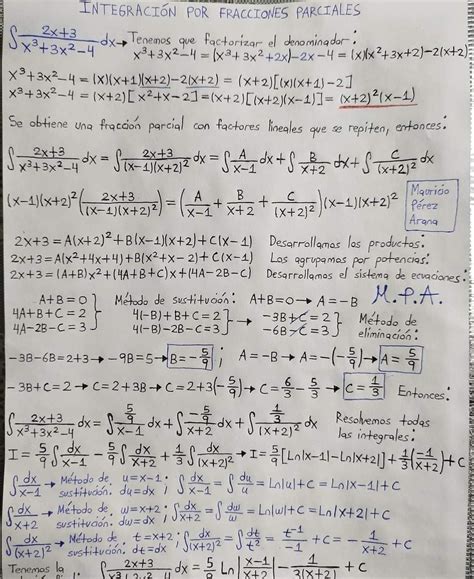 INTEGRACIÓN POR FRACCIONES PARCIALES
∫ 2x+3/x³+3x²-4 dx → Tenemos que factorizar el denominador:
x³+3x²-4 = (x³+3x²+2x)-2x-4 = (x)(x²+3x+2)-2(x+2)
x³+3x²-4 = (x)(x+1)(x+2)-2(x+2) = (x+2)[(x)(x+1)-2]
x³+3x²-4 = (x+2)[x²+x-2] = (x+2)[(x+2)(x-1)] = (x+2)²(x-1)
Se obtiene una fracción parcial con factores lineales que se repiten, entonces:
∫ 2x+3/x³+3x²-4 dx = ∫ 2x+3/(x-1)(x+2)² dx = ∫ A/x-1 dx + ∫ B/x+2 dx + ∫ C/(x+2)² dx
(x-1)(x+2)² (2x+3/(x-1)(x+2)²) = (A/x-1 + B/x+2 + C/(x+2)²)(x-1)(x+2)²
Mauricio
Pérez
Arana
2x+3 = A(x+2)²+B(x-1)(x+2)+C(x-1) Desarrollamos los productos:
2x+3 = A(x²+4x+4)+B(x²+x-2)+C(x-1) Los agrupamos por potencias:
2x+3 = (A+B)x²+(4A+B+C)x+(4A-2B-C) Desarrollamos el sistema de ecuaciones:
A+B=0 } Método de sustitución: A+B=0 → A=-B M.P.A.
4A+B+C=2 } 4(-B)+B+C=2 } → -3B+C=2 } Método de
4A-2B-C=3 } 4(-B)-2B-C=3 } -6B-C=3 } eliminación:
-3B-6B=2+3 → -9B=5 → B=-5/9 ; A=-B → A=-(-5/9) → A=5/9
-3B+C=2 → C=2+3B → C=2+3(-5/9) → C=6/3-5/3 → C=1/3 Entonces:
∫ 2x+3/x³+3x²-4 dx = ∫ 5/9/x-1 dx + ∫ -5/9/x+2 dx + ∫ 1/3/(x+2)² dx Resolvemos todas
las integrales:
I = 5/9 ∫ dx/x-1 - 5/9 ∫ dx/x+2 + 1/3 ∫ dx/(x+2)² → I = 5/9 [Ln|x-1|-Ln|x+2|] + 1/3(-1/x+2)+C
∫ dx/x-1 → Método de sustitución: u=x-1 ; du=dx ; ∫ dx/x-1 = ∫ du/u = Ln|u|+C = Ln|x-1|+C
∫ dx/x+2 → Método de sustitución: w=x+2 ; dw=dx ; ∫ dx/x+2 = ∫ dw/w = Ln|w|+C = Ln|x+2|+C
∫ dx/(x+2)² → Método de sustitución: t=x+2 ; dt=dx ; ∫ dx/(x+2)² = ∫ dt/t² = t⁻¹/-1 + C = -1/x+2 + C
Tenemos la ∫ 2x+3/x³+3x²-4 dx = 5/9 Ln|x-1/x+2| - 1/3(x+2) + C